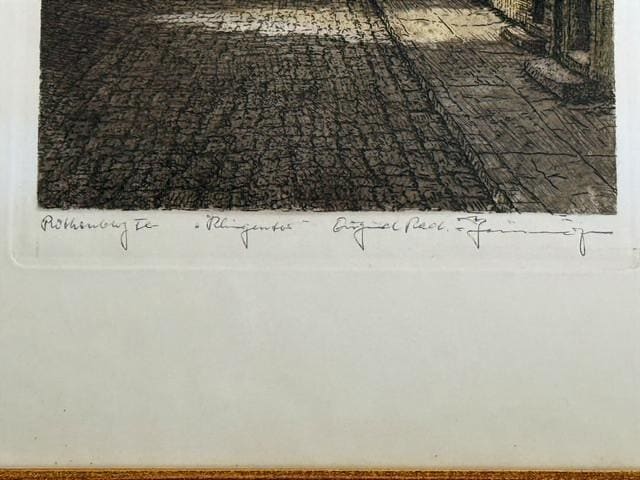 Rothenburg Tr "Klingentor" Original Rad.